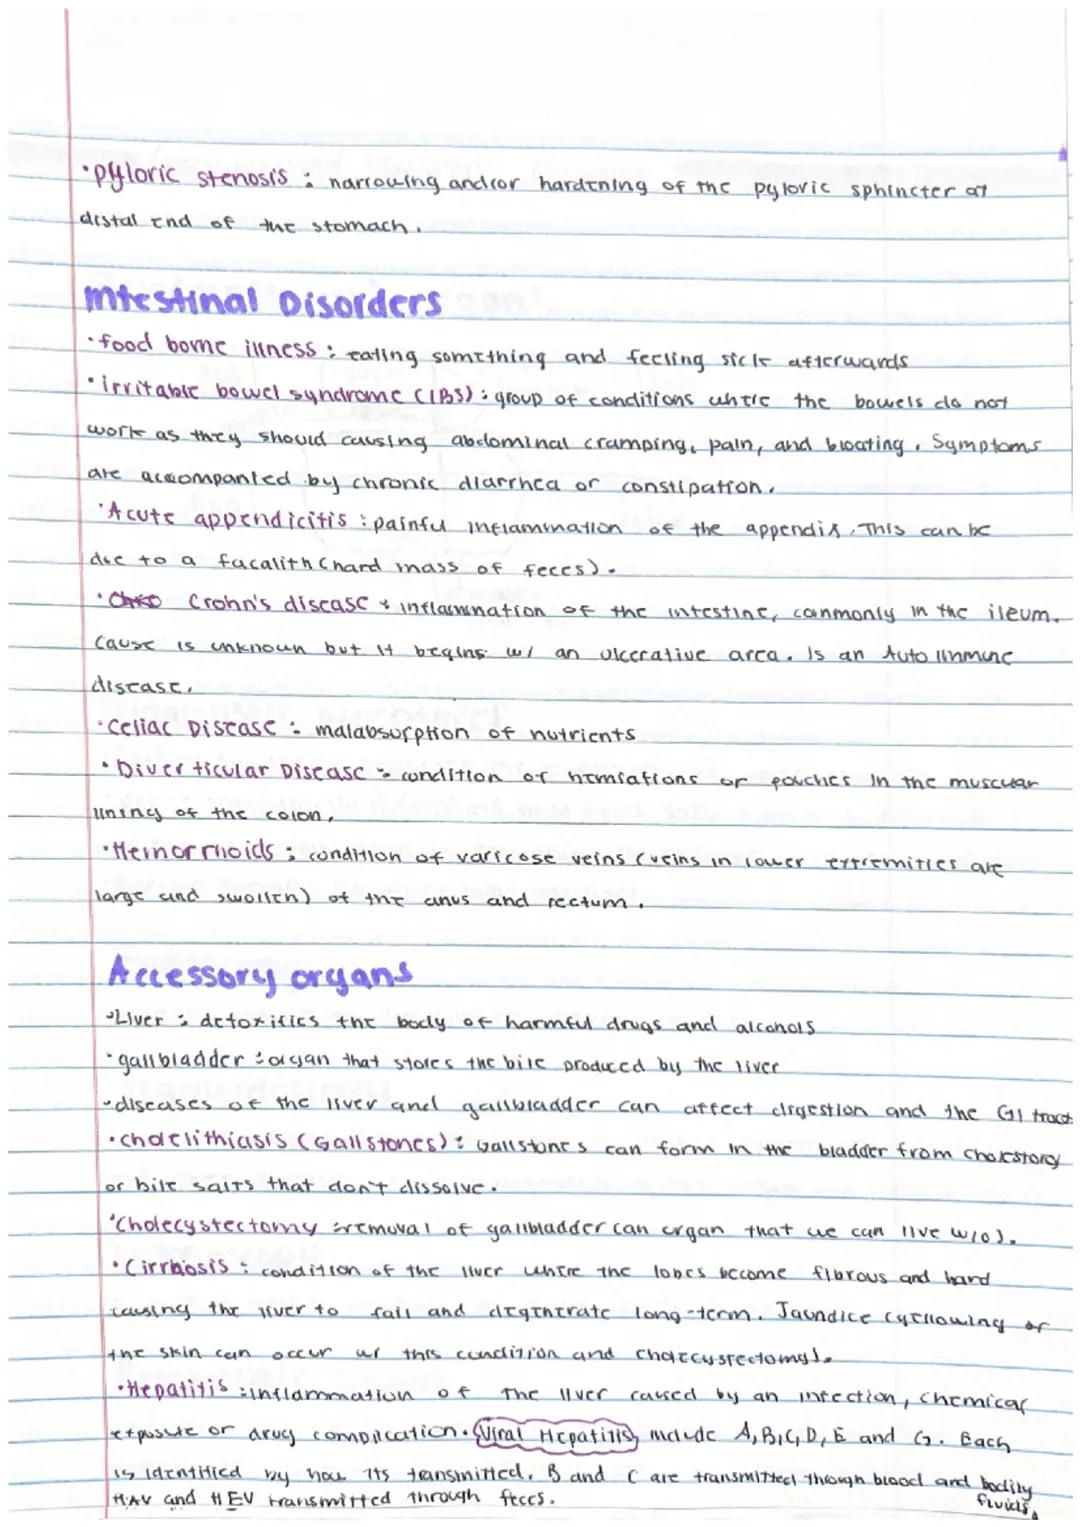 •pyloric stenosis : narrowing and/or hardening of the pyloric sphincter at
distal end of the stomach.
Intestinal Disorders
•food borne illness : eating something and feeling sick afterwards
•irritable bowel syndrome (IBS) : group of conditions where the bowels do not
work as they should causing abdominal cramping, pain, and bloating. Symptoms
are accompanied by chronic diarrhea or constipation.
•Acute appendicitis : painful inflammation of the appendix. This can be
due to a facalith (hard mass of feces).
• Crohn's disease : inflammation of the intestine, commonly in the ileum.
Cause is unknown but it begins w/ an ulcerative area. Is an Auto immune
disease.
•Celiac Disease : malabsorption of nutrients
•Diverticular Disease : condition of herniations or pouches in the muscular
lining of the colon.
•Hemorrhoids : condition of varicose veins (veins in lower extremities are
large and swollen) of the anus and rectum.
Accessory organs
•Liver : detoxifies the body of harmful drugs and alcohols
•gallbladder : organ that stores the bile produced by the liver
•diseases of the liver and gallbladder can affect digestion and the GI tract
•cholelithiasis (Gallstones) : Gallstones can form in the bladder from
or bile salts that don't dissolve.
•Cholecystectomy : removal of gallbladder (an organ that we can live w/o).
•Cirrhosis : condition of the liver where the lobes become fibrous and hard
causing the liver to fail and degenerate long-term. Jaundice (yellowing of
the skin can occur w/ this condition and
•Hepatitis : inflammation of the liver caused by an infection, chemical
exposure or drug complication. Viral Hepatitis include A, B, C, D, E and G. Each
is identified by how its transmitted. B and C are transmitted through blood and bodily fluids.
HAV and HEV transmitted through feces.